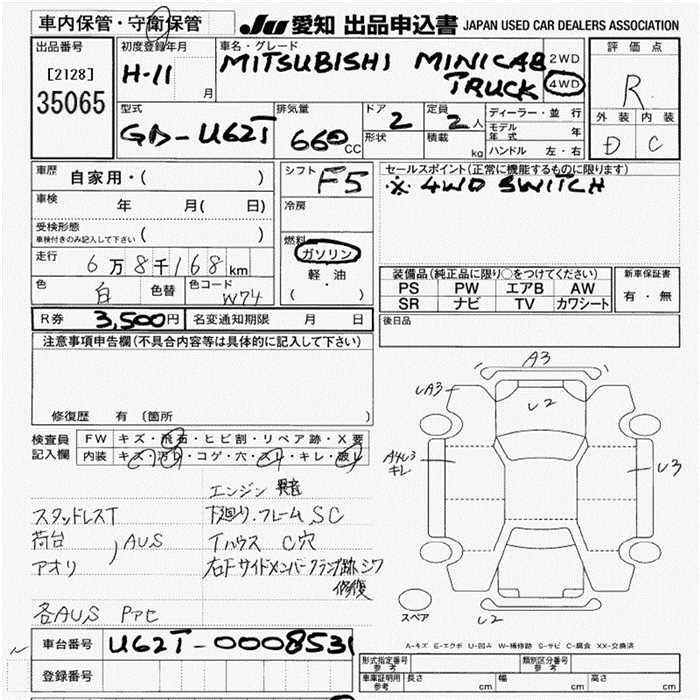 車内保管・守衛保管
JU 愛知 出品申込書 JAPAN USED CAR DEALERS ASSOCIATION
出品番号
[2128]
35065
初度登録年月
H-11 月
車名・グレード
MITSUBISHI MINICAB
TRUCK
2WD
4WD
評価点
R
外装 内装
D C
型式
GD-U62T
排気量
660 CC
ドア 2
形状
定員 2 人
積載 kg
ディーラー・並行
モデル年式 年
ハンドル 左・右
車歴 自家用・( )
車検 年 月( 日)
受検形態
車検付きのみ記入して下さい ( )
走行 6万8千168km
色 白 色替 色コード W74
シフト F5
冷房
燃料
ガソリン
軽・油
( ・ )
セールスポイント(正常に機能するものに限ります)
※ 4WD SWITCH
装備品(純正品に限り○をつけてください)
PS PW エアB AW
SR ナビ TV カワシート
新車保証書
有・無
R券 3,500円 名変通知期限 月 日
後日品
注意事項申告欄(不具合内容等は具体的に記入して下さい)
修復歴 有〔箇所 〕
検査員記入欄
FW キズ・飛石・ヒビ割・リペア跡・X要
内装 キズ・汚レ・コゲ・穴・スレ・キレ・破レ
エンジン異音
スタッドレスT 下廻り・フレームSC
荷台 AUS Tハウス C穴
アオリ 右Fサイドメンバークランプ跡シワ
修復
各AUS
A3
UA3
U2
A4U3
キレ
U3
スペア
U2
A-キズ E-エクボ U-凹み W-補修跡 S-サビ C-腐食 XX-交換済
車台番号 U62T-0008531
登録番号
形式指定番号 参考 類別区分番号 参考
車庫証明用 参考 長さ cm 幅 cm 高さ cm